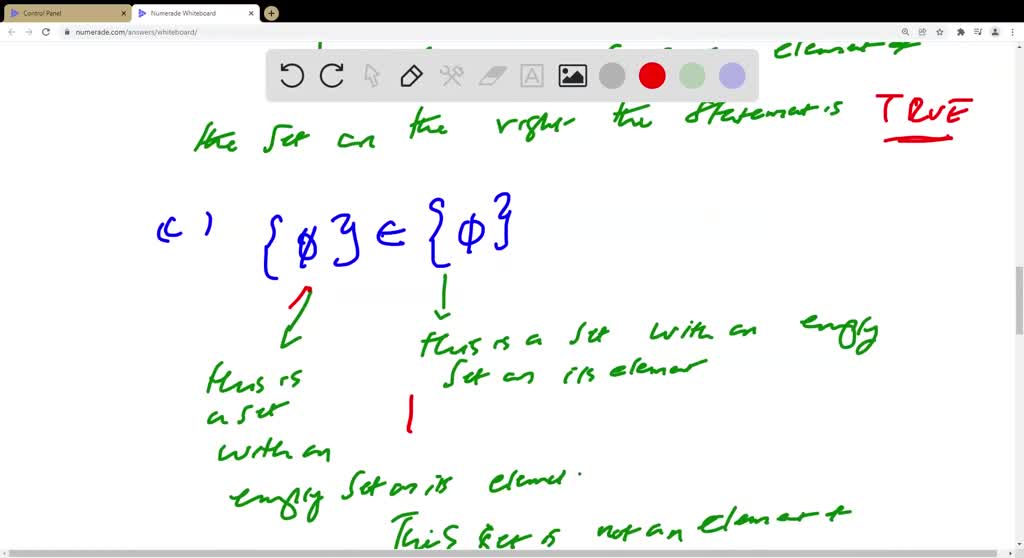 Control Panel
Numerade Whiteboard
numerade.com/answers/whiteboard/
element of
the set on the right the statement is TRUE
(c) {∅} ∈ {∅}
this is a set with an empty
set as its element
this is
a set
with an
empty set as its element.
This set is not an element of